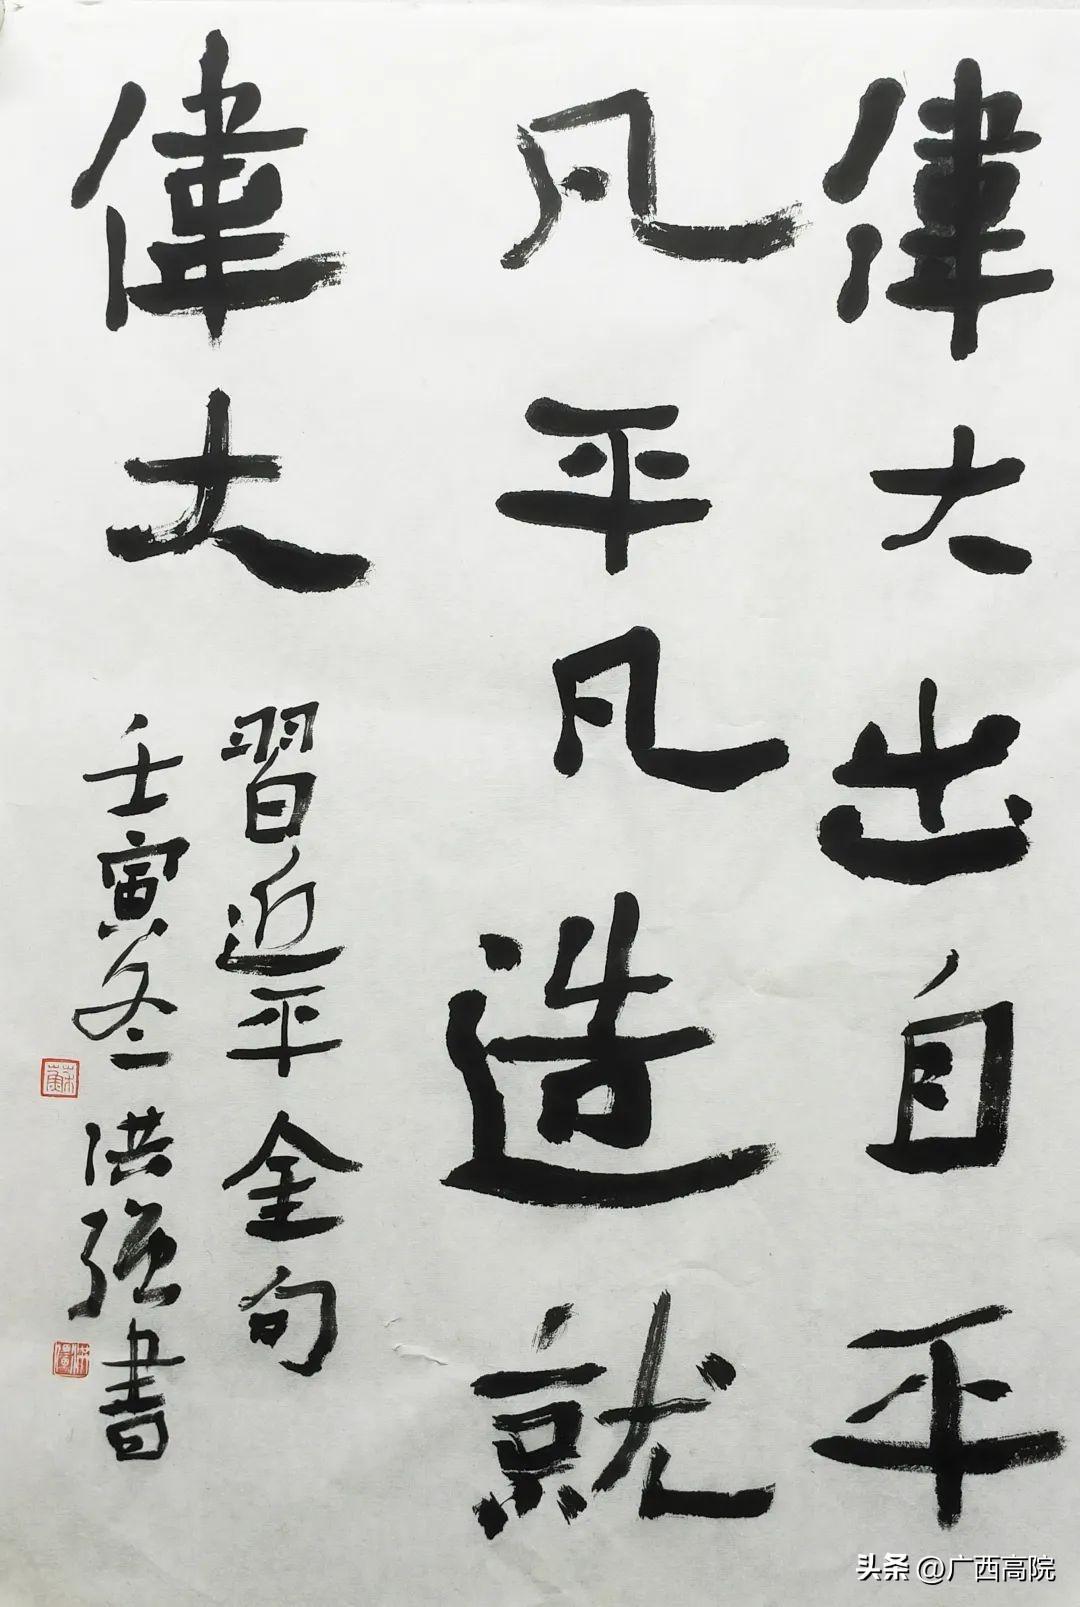 偉大出自平
凡平凡造就
偉大
習近平金句
壬寅冬洪強書
蘇
头条 @广西高院